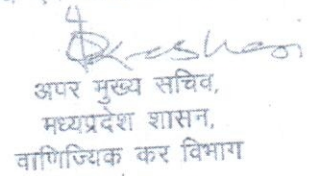 अपर मुख्य सचिव,
मध्यप्रदेश शासन,
वाणिज्यिक कर विभाग